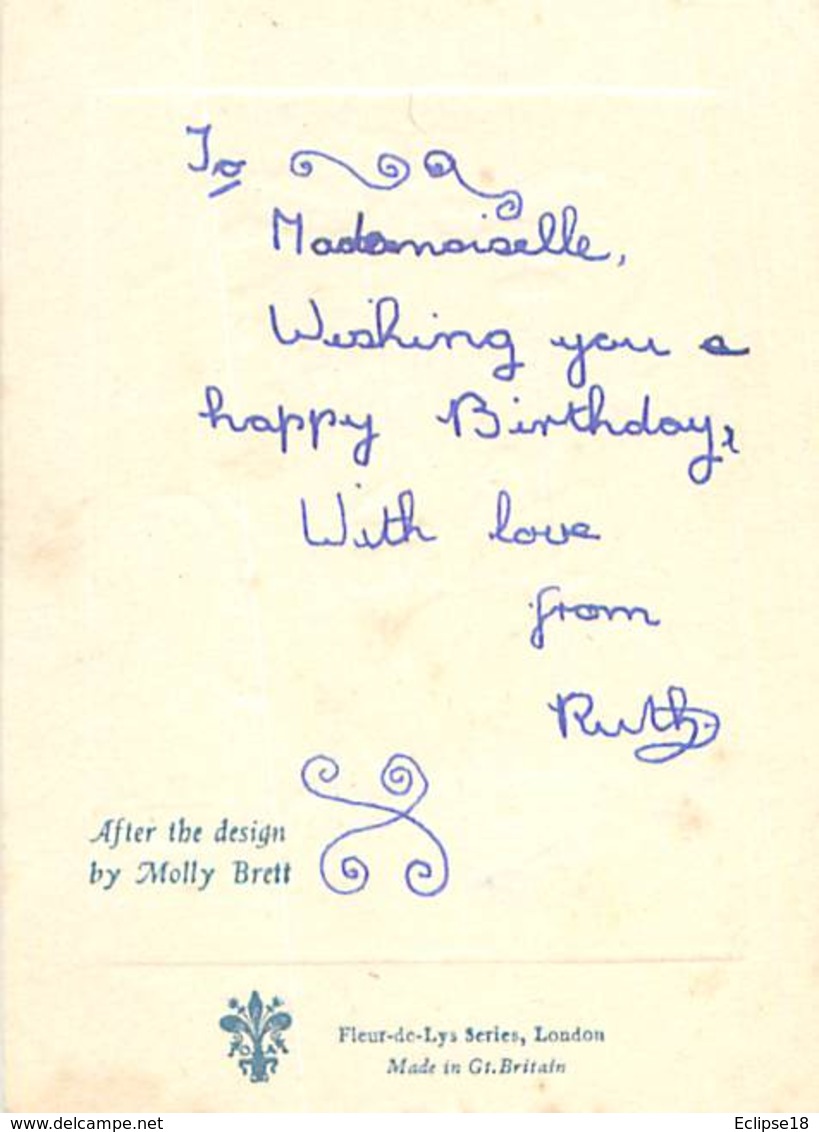 To
Mademoiselle,
Wishing you a
happy Birthday,
With love
from
Ruth.
After the design
by Molly Brett
Fleur-de-Lys Series, London
Made in Gt.Britain
www.delcampe.net
Eclipse18